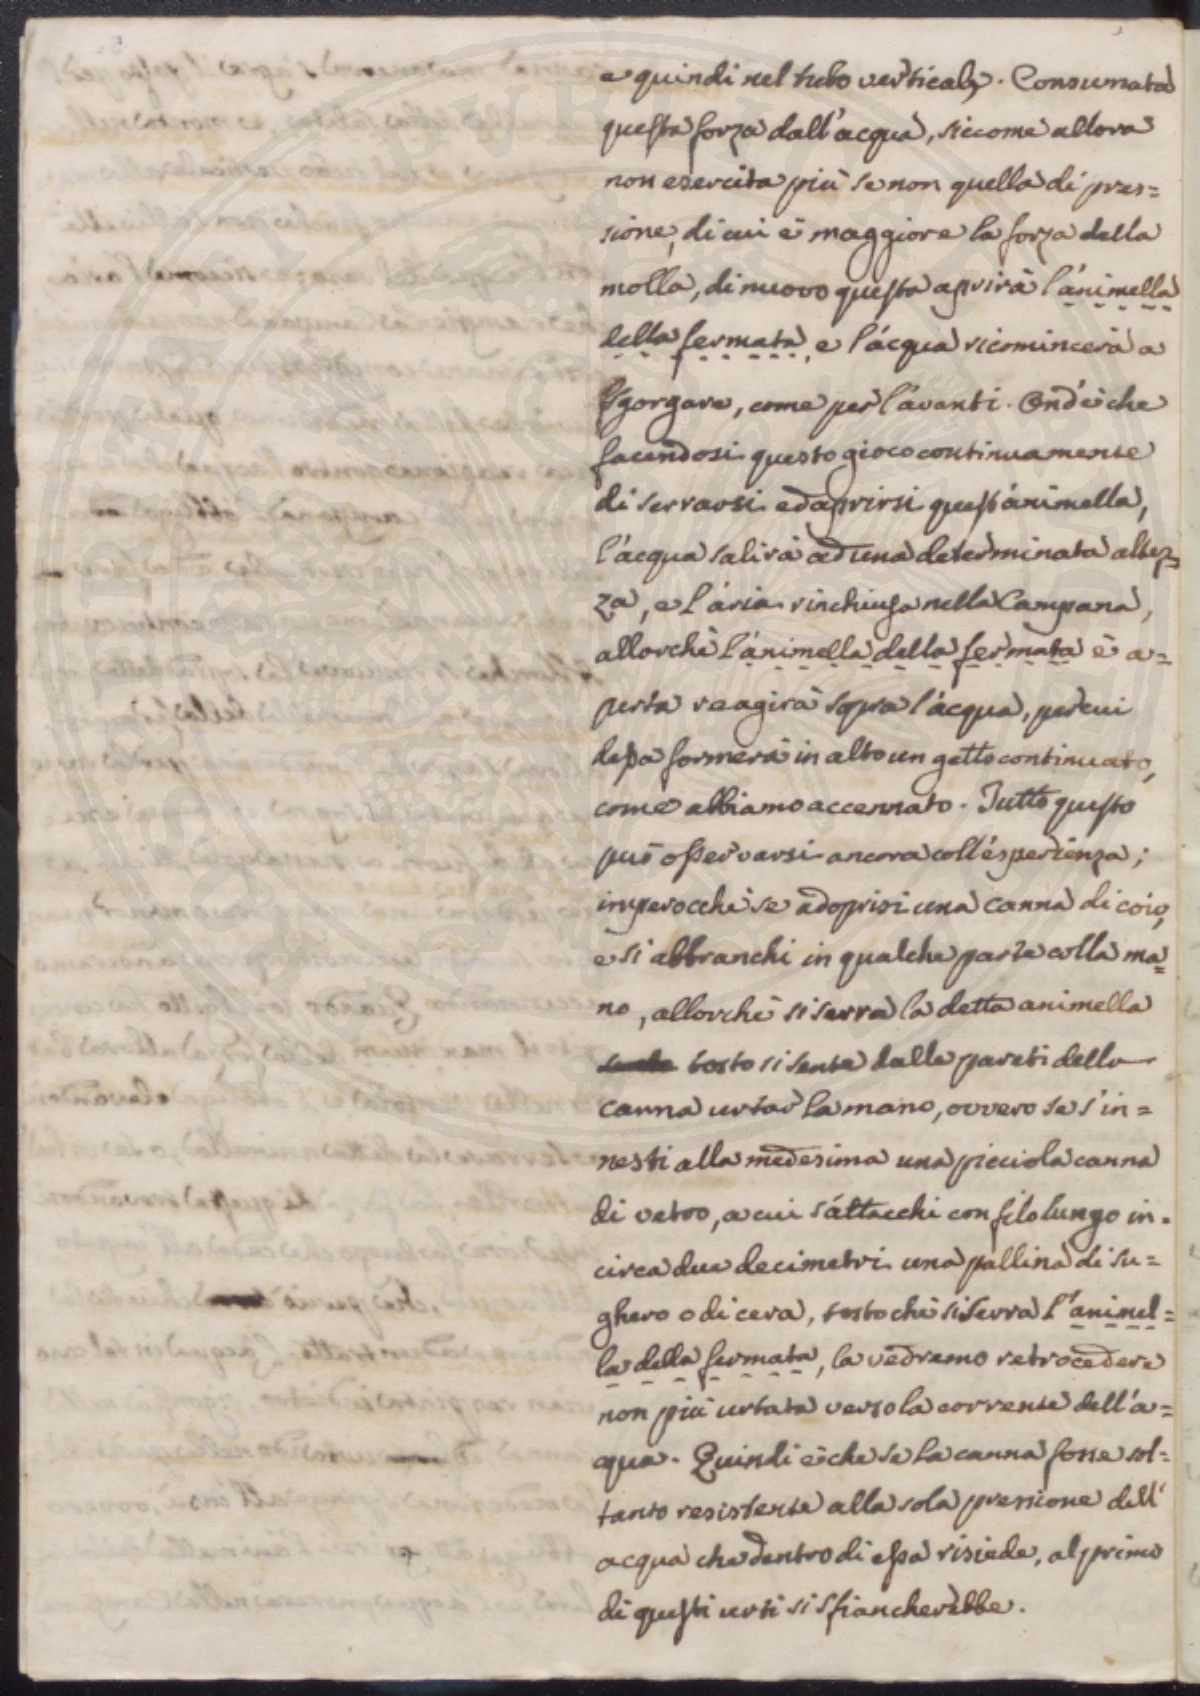 e quindi nel tubo verticale. Consumata
questa forza dall'acqua, siccome allora
non esercita più se non quella di pres=
sione, di cui è maggiore la forza della
molla, di nuovo questa aprirà l'animella
della fermata, e l'acqua ricomincerà a
sgorgare, come per l'avanti. Ond'è che
facendosi questo gioco continuamente
di serrarsi ed aprirsi quest'animella,
l'acqua salirà ad una determinata altez=
za, e l'aria rinchiusa nella Campana,
allorchè l'animella della fermata è a=
perta reagirà sopra l'acqua, per cui
dessa formerà in alto un getto continuato,
come abbiamo accennato. Tutto questo
può osservarsi ancora coll'esperienza;
imperocchè se adoprisi una canna di coio,
e si abbranchi in qualche parte colla ma=
no, allorchè si serra la detta animella
tosto si sente dalle pareti della
canna urtar la mano, ovvero se s'in=
nesti alla medesima una picciola canna
di vetro, a cui s'attacchi con filo lungo in=
circa due decimetri una pallina di su=
ghero o di cera, tosto chè si serra l'animel=
la della fermata, la vedremo retrocedere
non più urtata verso la corrente dell'a=
qua. Quindi è che se la canna fosse sol=
tanto resistente alla sola pressione dell'
acqua che dentro di essa risiede, al primo
di questi urti si sfiancherebbe.